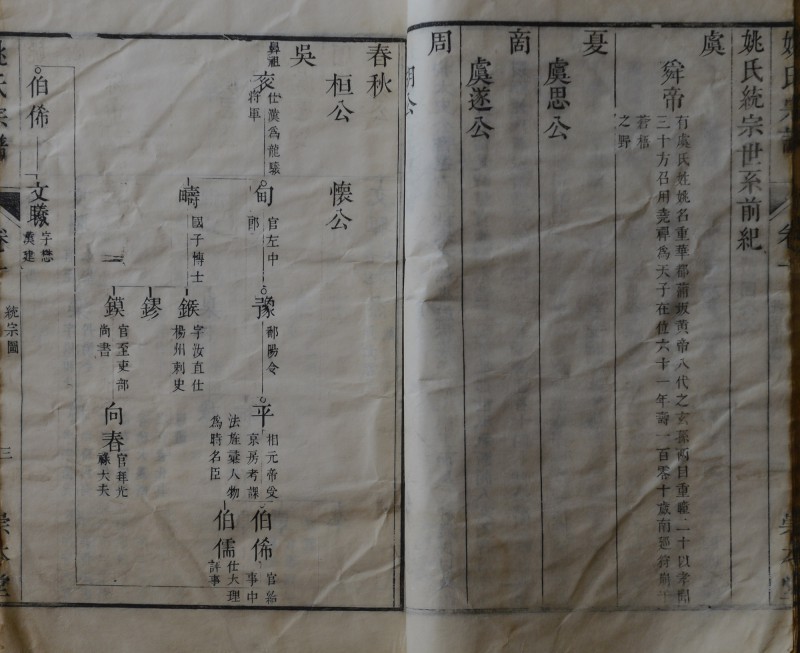 姚氏統宗世系前紀
虞
舜帝
有虞氏姓姚名重華都蒲坂黄帝八代之玄孫兩目重瞳二十以孝聞
三十方召用堯禪為天子在位六十一年壽一百零十歲南廵狩崩于
蒼梧
之野
夏
虞思公
商
虞遂公
周
胡公
春秋
桓公
懷公
吳
仕漢為龍驤
將軍
甸
官左中
郎
豫
鄱陽令
平
相元帝受
京房考課
法旌薦人物
為時名臣
伯俙
官給
事中
伯儒
仕大理
評事
疇
國子博士
三
鍭
字汝直仕
楊州刺史
鏐
鏌
官至吏部
尚書
向春
官拜光
祿大夫
伯俙
文曦
統宗圖
三
崇本堂